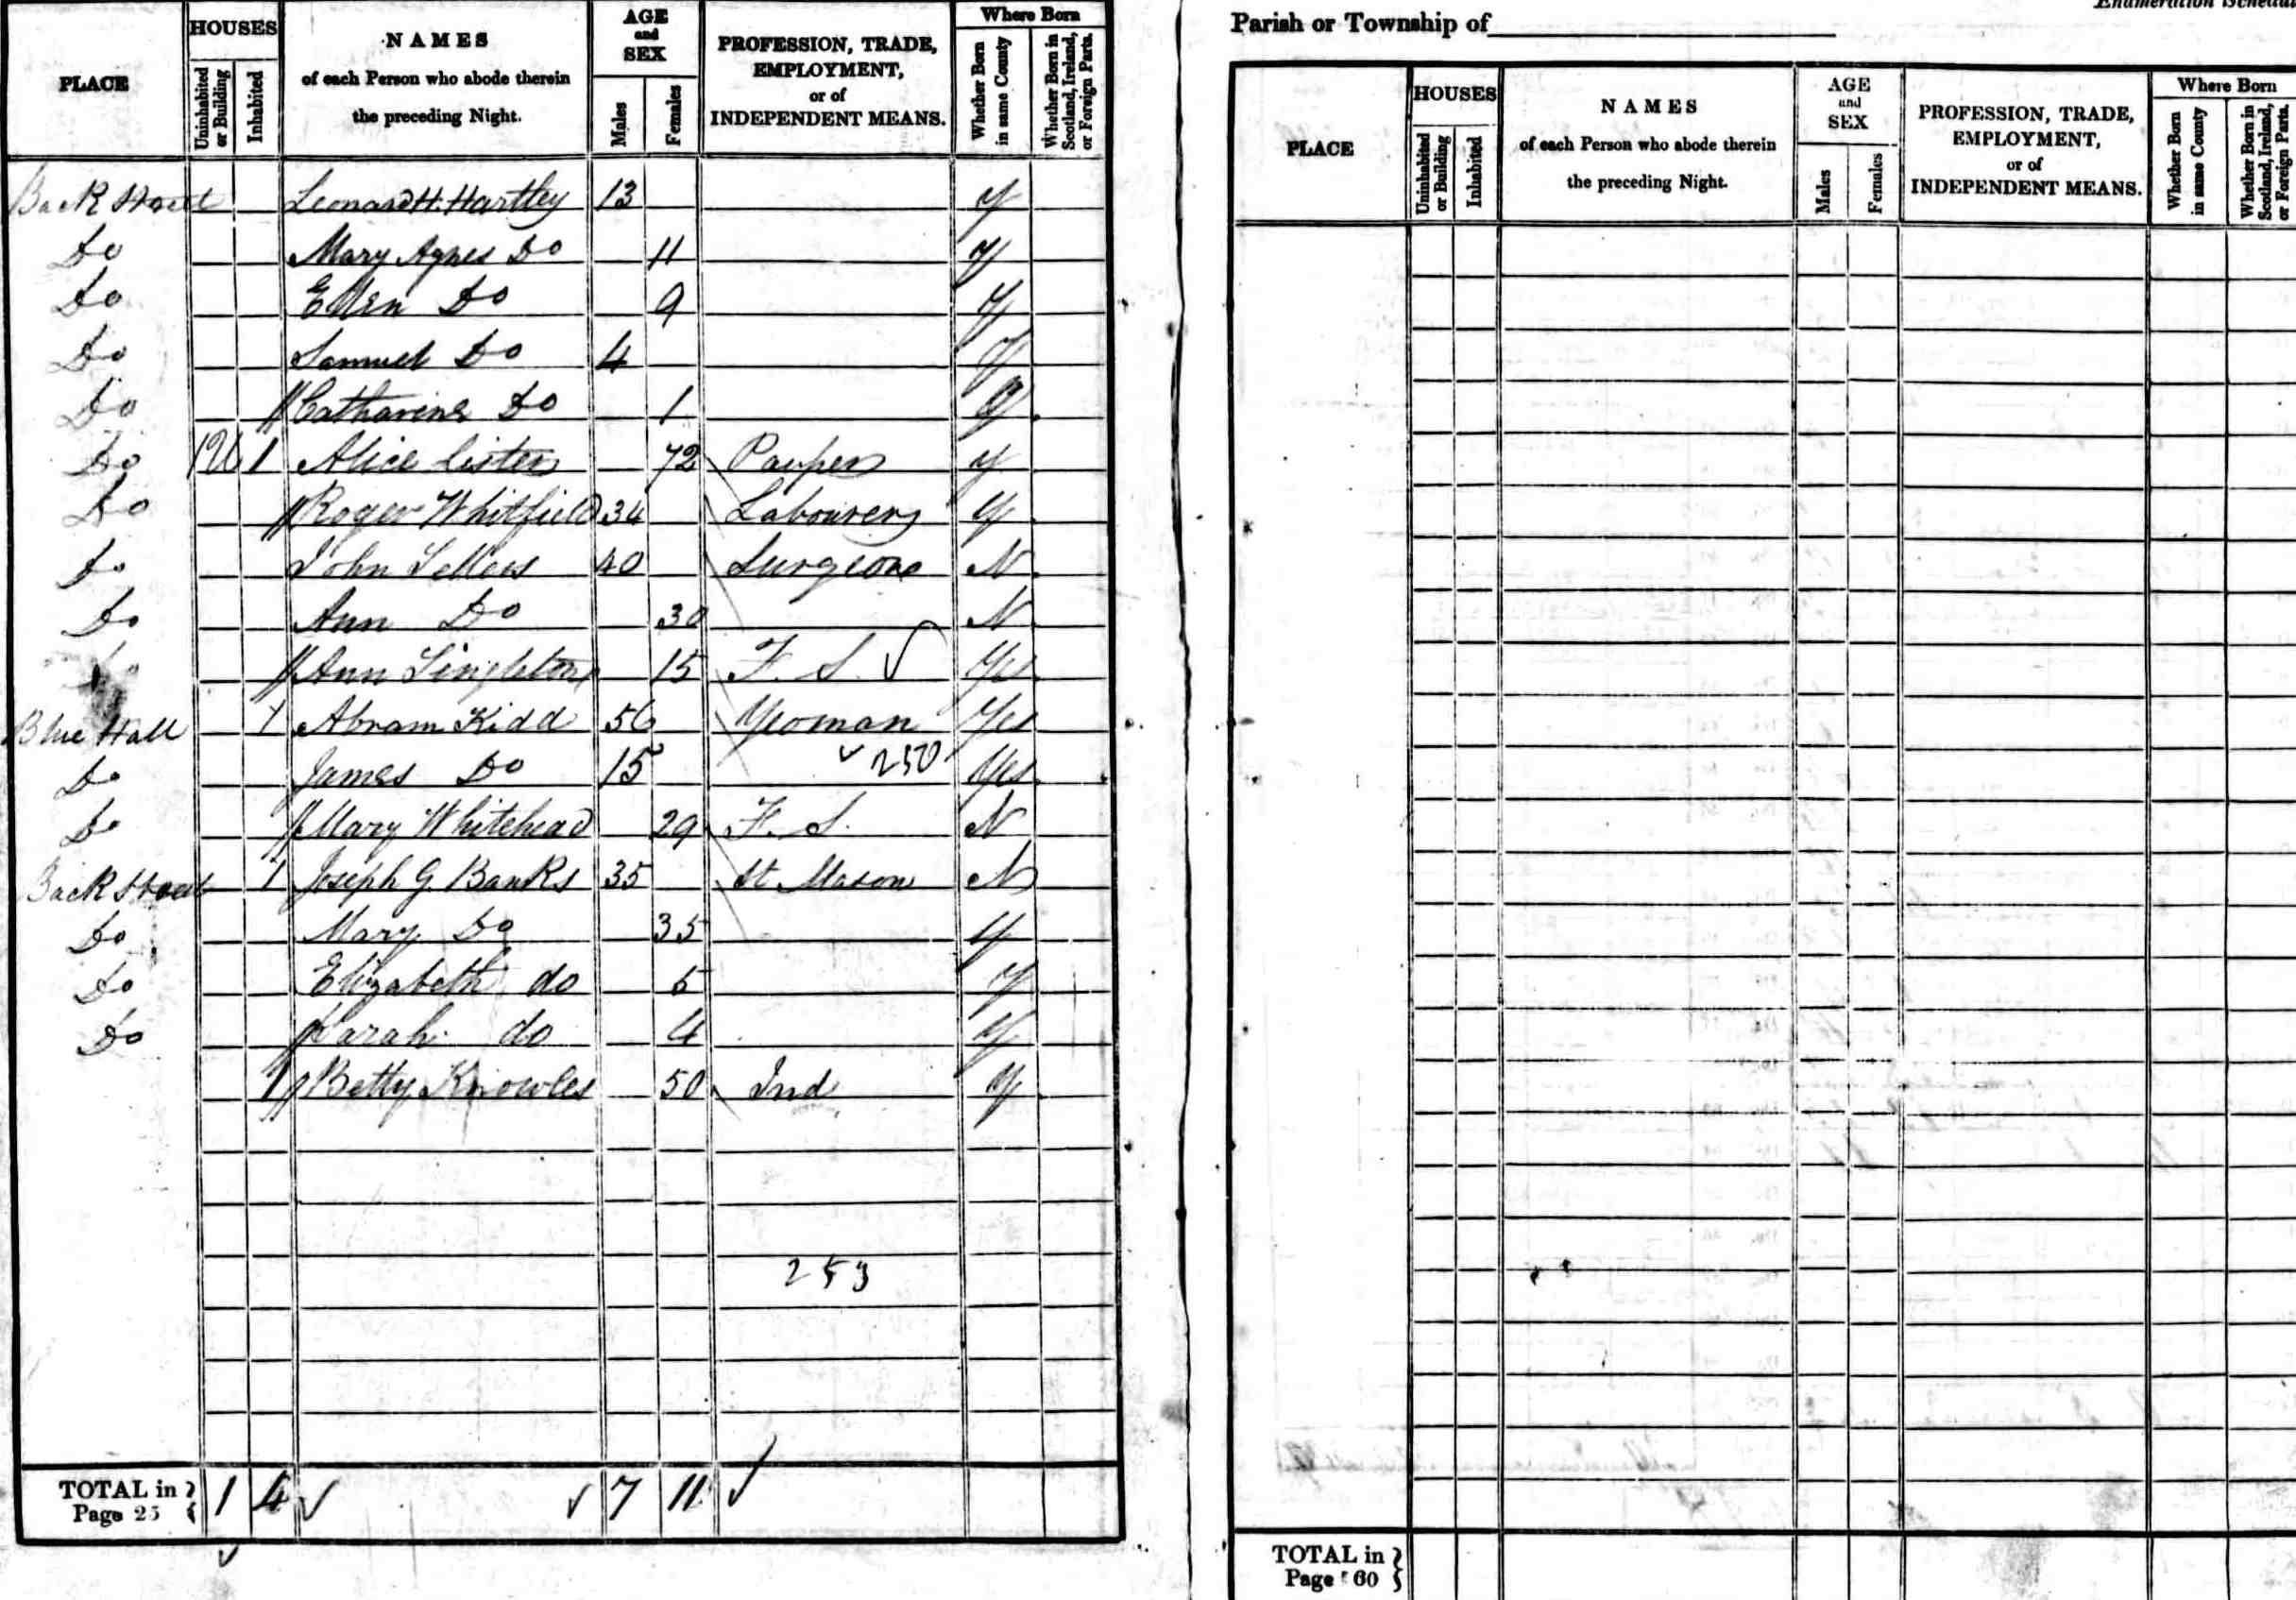 PLACE
HOUSES
Uninhabited or Building
Inhabited
NAMES
of each Person who abode therein
the preceding Night.
AGE
and
SEX
Males
Females
PROFESSION, TRADE,
EMPLOYMENT,
or of
INDEPENDENT MEANS.
Where Born
Whether Born in same County
Whether Born in Scotland, Ireland, or Foreign Parts.
Back Street Leonard H. Hartley 13 y
Do Mary Agnes Do 11 y
Do Ellen Do 9 y
Do Samuel Do 4 y
Do // Catharine Do 1 y
Do 1 Alice Lister 72 Pauper y
Do // Roger Whitfield 34 Labourer y
Do John Sellers 40 Surgeon N
Do Ann Do 30 N
Do // Ann Singleton 15 F. S. Yes
Blue Hall 1 Abram Kidd 56 Yeoman Yes
Do James Do 15 250 Yes
Do // Mary Whitehead 29 F. S. N
Back Street 1 Joseph G Banks 35 St Mason N
Do Mary Do 35 y
Do Elizabeth do 5 y
Do // Sarah do 4 y
1 // Betty Knowles 50 Ind y
253
TOTAL in Page 25 1 4 7 11
Enumeration Schedule
Parish or Township of
PLACE
HOUSES
Uninhabited or Building
Inhabited
NAMES
of each Person who abode therein
the preceding Night.
AGE
and
SEX
Males
Females
PROFESSION, TRADE,
EMPLOYMENT,
or of
INDEPENDENT MEANS.
Where Born
Whether Born in same County
Whether Born in Scotland, Ireland, or Foreign Parts.
TOTAL in Page 60